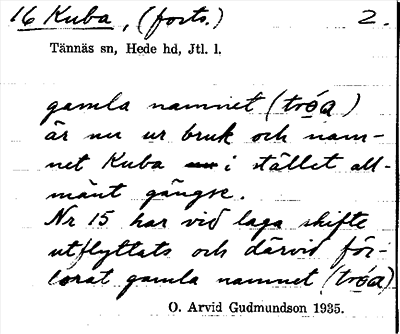 16 Kuba, (forts.) 2.
Tännäs sn, Hede hd, Jtl. l.
gamla namnet (tróa)
är nu ur bruk och nam-
net Kuba i stället all-
mänt gängse.
Nr 15 har vid laga skifte
utflyttats och därvid för-
lorat gamla namnet (tróa)
O. Arvid Gudmundson 1935.